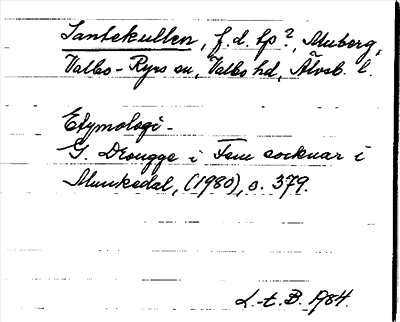 Santekullen, f.d. lp?, Muberg,
Valbo-Ryrs sn, Valbo hd, Älvsb. l.
Etymologi -
G. Drougge i Fem socknar i
Munkedal, (1980), s. 379.
L.-t. B. 1984.